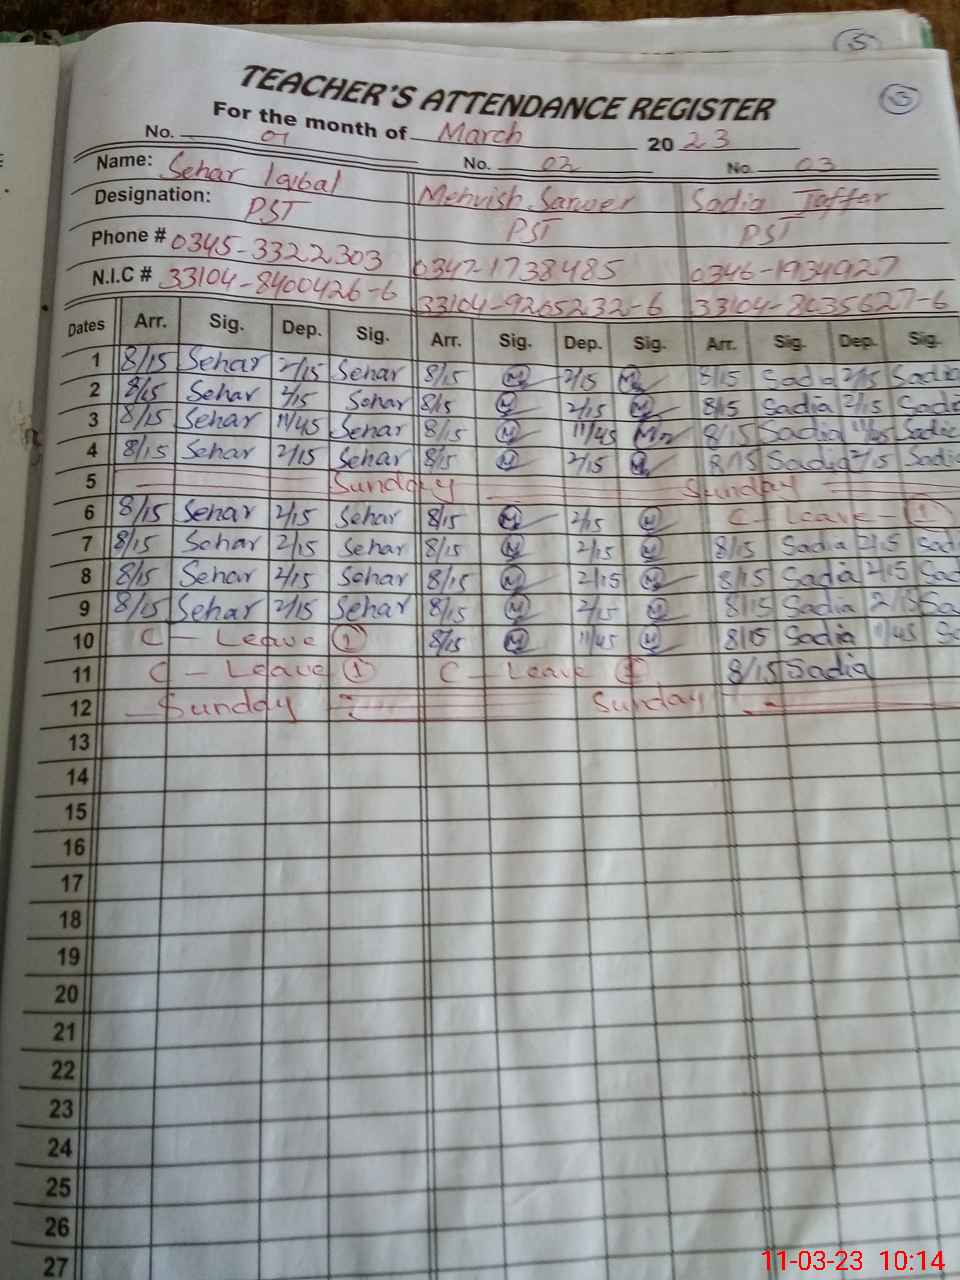 5
TEACHER'S ATTENDANCE REGISTER 3
For the month of March 2023
No. 01 No. 02 No. 03
Name: Sehar Iqbal Mehvish Sarwer Sadia Jaffar
Designation: PST PST PST
Phone # 0345-3322303 0347-1738485 0346-1934927
N.I.C # 33104-8400426-6 33104-9205232-6 33104-8035627-6
Dates Arr. Sig. Dep. Sig. Arr. Sig. Dep. Sig. Arr. Sig. Dep. Sig.
1 8/15 Sehar 2/15 Sehar 8/15 M 2/15 M 8/15 Sadia 2/15 Sadia
2 8/15 Sehar 2/15 Sehar 8/15 M 2/15 M 8/15 Sadia 2/15 Sadi
3 8/15 Sehar 11/45 Sehar 8/15 M 11/45 M 8/15 Sadia 11/45 Sadi
4 8/15 Sehar 2/15 Sehar 8/15 M 2/15 M 8/15 Sadia 2/15 Sadi
5 Sunday Sunday
6 8/15 Sehar 2/15 Sehar 8/15 M 2/15 M C - Leave - 1
7 8/15 Sehar 2/15 Sehar 8/15 M 2/15 M 8/15 Sadia 2/15 Sad
8 8/15 Sehar 2/15 Sehar 8/15 M 2/15 M 8/15 Sadia 2/15 Sad
9 8/15 Sehar 2/15 Sehar 8/15 M 2/15 M 8/15 Sadia 2/15 Sa
10 C - Leave 1 8/15 M 11/45 M 8/15 Sadia 11/45 Sa
11 C - Leave 1 C - Leave 8/15 Sadia
12 Sunday Sunday
13
14
15
16
17
18
19
20
21
22
23
24
25
26
27
11-03-23 10:14